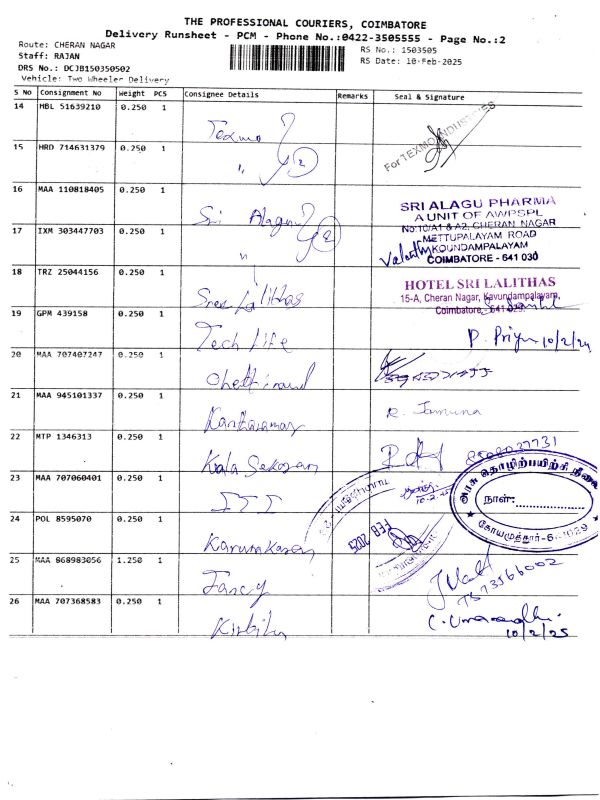 THE PROFESSIONAL COURIERS, COIMBATORE
Delivery Runsheet - PCM - Phone No.:0422-3505555 - Page No.:2
Route: CHERAN NAGAR
RS No.: 1503505
Staff: RAJAN
RS Date: 10-Feb-2025
DRS No.: DCJB150350502
Vehicle: Two Wheeler Delivery
S No Consignment No Weight PCS Consignee Details Remarks Seal & Signature
14 MBL 51639210 0.250 1
Texmo
For TEXMO INDUSTRIES
15 HRD 714631379 0.250 1
" 2
16 MAA 110818405 0.250 1
Sri Alagu
SRI ALAGU PHARMA
A UNIT OF AWPSPL
No:10/A1 & A2, CHERAN NAGAR
METTUPALAYAM ROAD
KOUNDAMPALAYAM
COIMBATORE - 641 030
17 IXM 303447703 0.250 1
" 2
18 TRZ 25044156 0.250 1
Sree Lalithas
HOTEL SRI LALITHAS
15-A, Cheran Nagar, Kavundampalayam,
Coimbatore - 641 029.
19 GPM 439158 0.250 1
Tech life
P. Priya 10/2/25
20 MAA 707407247 0.250 1
21 MAA 945101337 0.250 1
R. Jamuna
22 MTP 1346313 0.250 1
Kala Sekaran
23 MAA 707060401 0.250 1
ITI
10-2-25
அரசு தொழிற்பயிற்சி நிலை
நாள்:
கோயமுத்தூர்-6
24 POL 8595070 0.250 1
Karunakaran
FEB 2025
25 MAA 868983056 1.250 1
Fancy
26 MAA 707368583 0.250 1
10/2/25